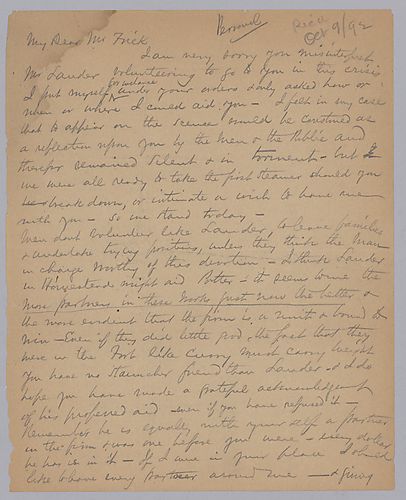 Personal
Recd
Oct 9/92
My Dear Mr Frick
I am very sorry you misinterpret
Mr Lauder volunteering to go to you in this crisis
I put myself under your orders & only asked how or
when or where I could aid you — I felt in my case
that to appear on the scene would be construed as
a reflection upon you by the men & the Public and
therefor remained silent & in torment — but
we were all ready to take the first steamer should you
break down, or intimate a wish to have me
with you — So we stand today —
Men dont Volunteer like Lauder, to leave families
& undertake trying positions, unless they think the Man
in charge worthy of this devotion — I think Lauder
in Homestead might aid Potter — it seems to me the
more partners in these works just now the better &
the more evident that the firm is a unit & bound to
win — Even if they did little good, the fact that they
were in the Fort like Curry must carry weight
You have no stauncher friend than Lauder — & I do
hope you have made a grateful acknowledgment
of his proffered aid — even if you have refused it —
Remember he is equally with yourself a partner
in the firm & was one before you were — every dollar
he has is in it — If I were in your place I should
like to have every partner around me — & giving